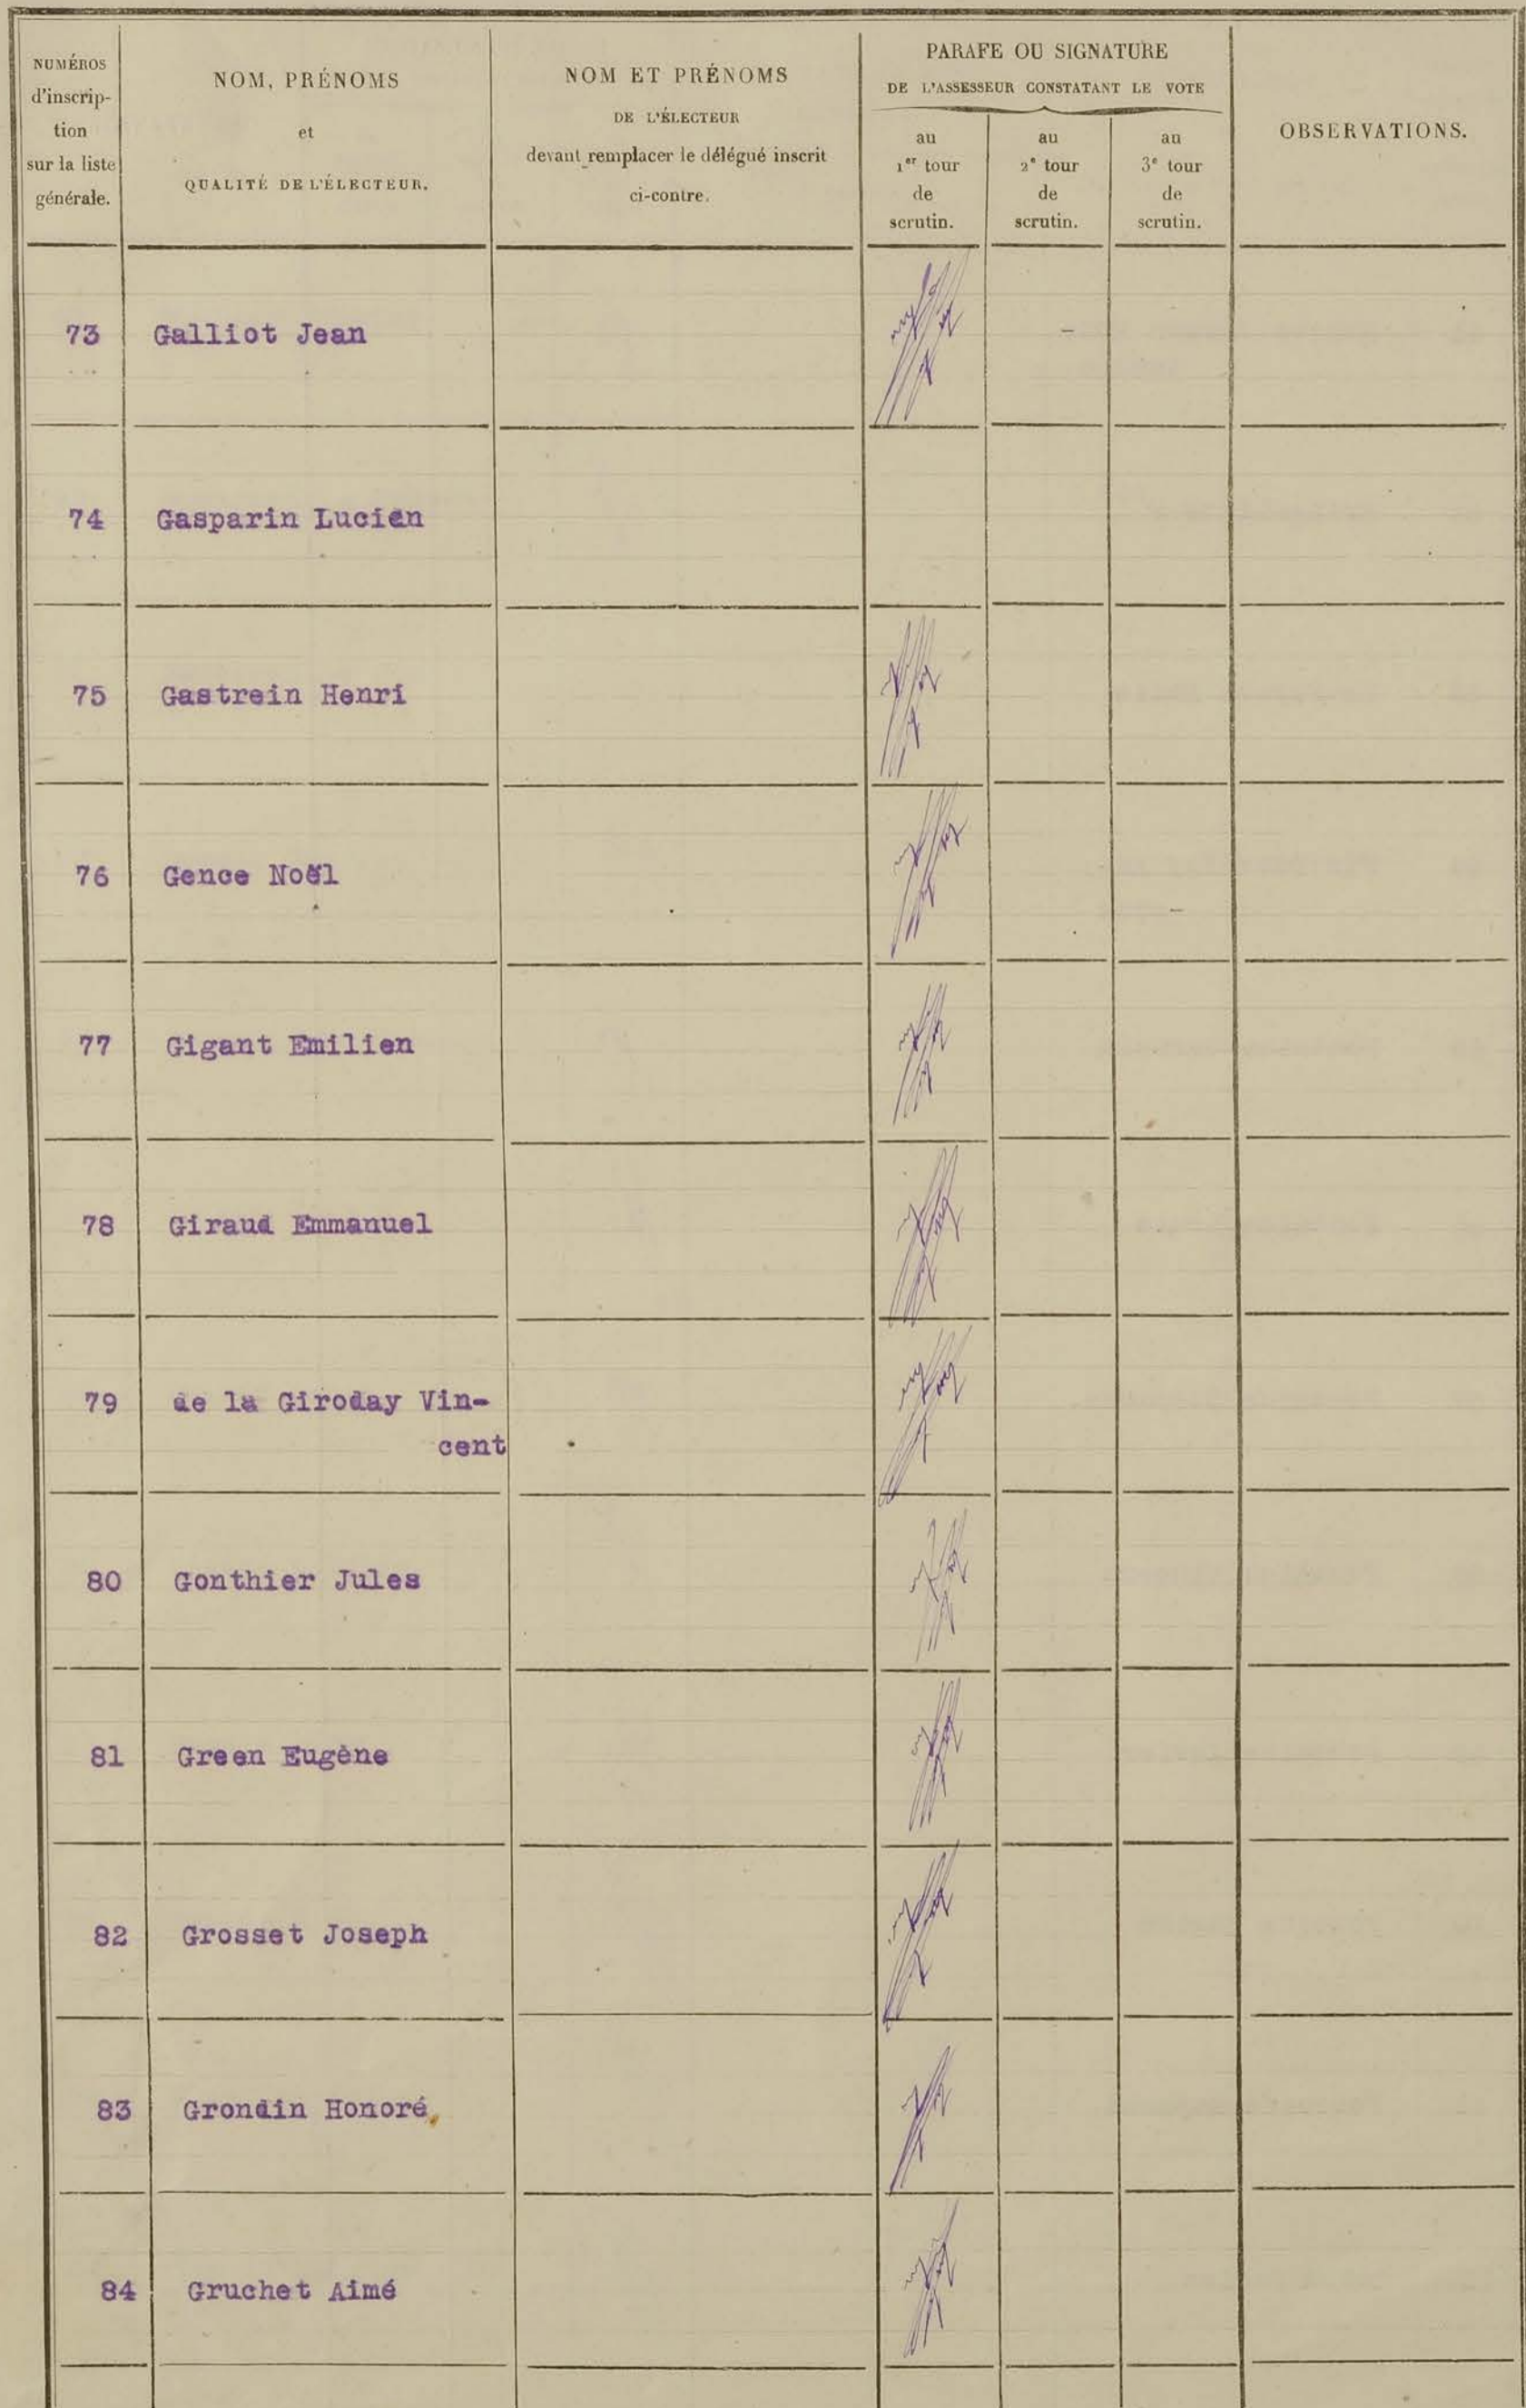 NUMÉROS
d'inscrip-
tion
sur la liste
générale.
NOM, PRÉNOMS
et
QUALITÉ DE L'ÉLECTEUR.
NOM ET PRÉNOMS
DE L'ÉLECTEUR
devant remplacer le délégué inscrit
ci-contre.
PARAFE OU SIGNATURE
DE L'ASSESSEUR CONSTATANT LE VOTE
au
1er tour
de
scrutin.
au
2e tour
de
scrutin.
au
3e tour
de
scrutin.
OBSERVATIONS.
73 Galliot Jean
74 Gasparin Lucien
75 Gastrein Henri
76 Gence Noël
77 Gigant Emilien
78 Giraud Emmanuel
79 de la Giroday Vin-
cent
80 Gonthier Jules
81 Green Eugène
82 Grosset Joseph
83 Grondin Honoré
84 Gruchet Aimé